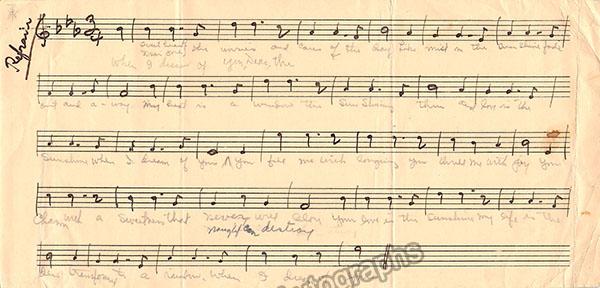 Refrain
the worries and cares of the day like mist in the sunshine fade
When I dream of you, dear, the
out and a-way my heart is a window the Sun Shining thru and love is the
Sunshine when I dream of you You fill me with longing you thrill me with joy your
Charm with a sweetness that never will your love is the Sunshine my life is the
destroy
to a rainbow when I
tographs